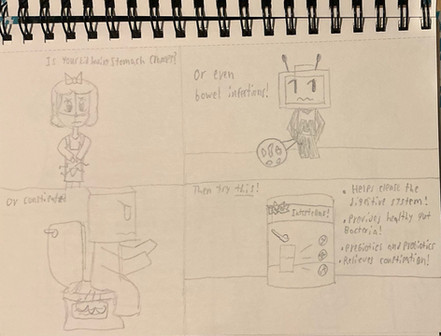 Is your kid havin stomach cramps?
Or even
bowel infections!
Or constipated
Then try this!
• Helps cleanse the
digistive system!
• Provides healthy gut
Bacteria!
• Prebiotics and probiotics
• Relieves constipation!